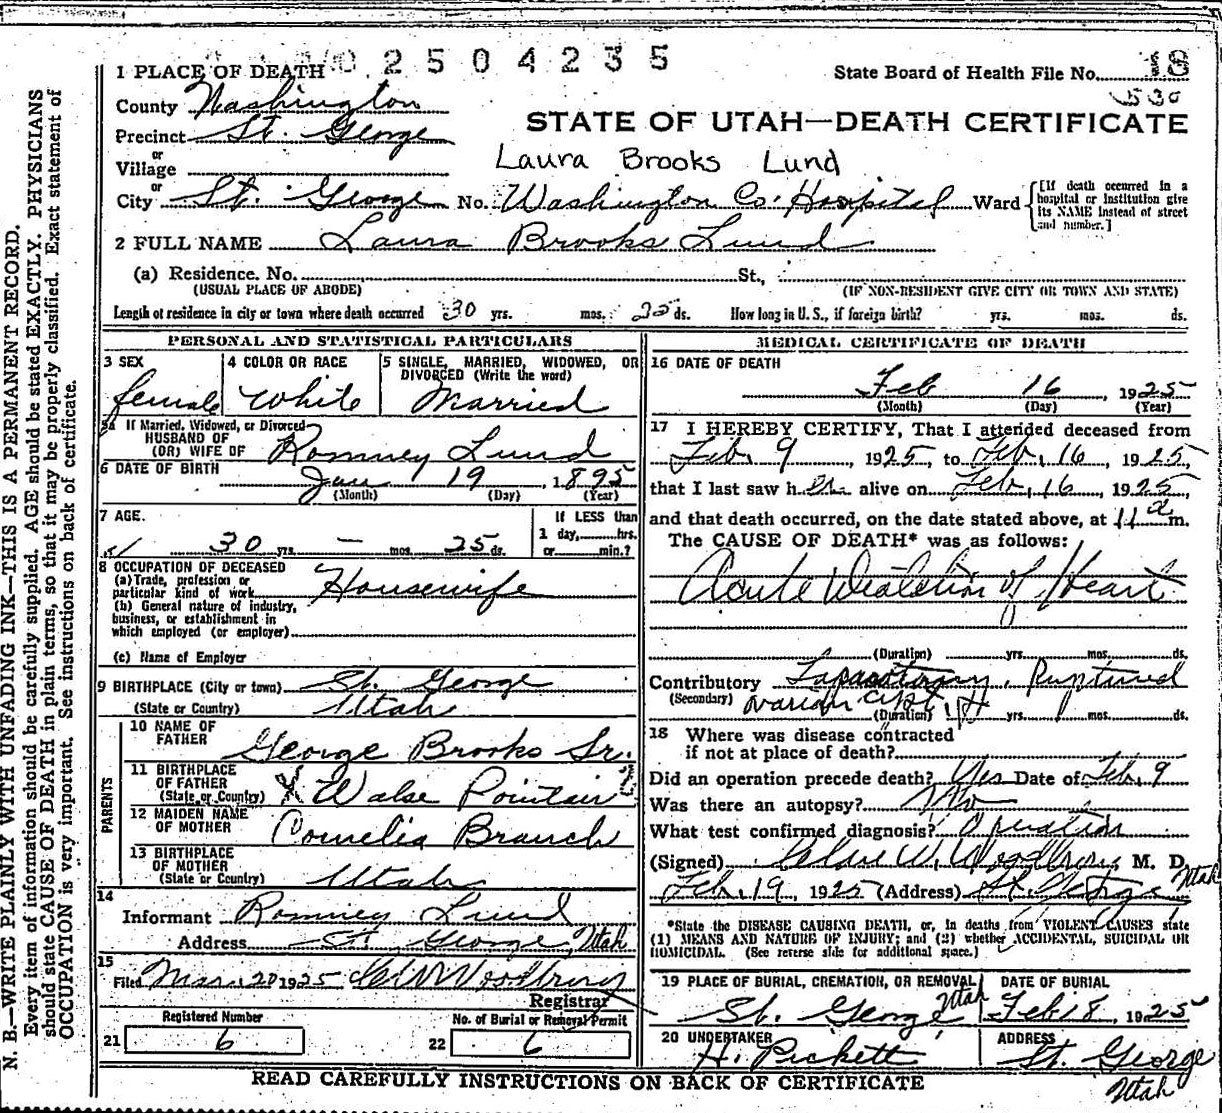 02504235
1 PLACE OF DEATH
State Board of Health File No. 18
530
County Washington
STATE OF UTAH—DEATH CERTIFICATE
Precinct St. George
or
Village
Laura Brooks Lund
or
City St. George No. Washington Co. Hospital Ward
[If death occurred in a
hospital or institution give
its NAME instead of street
and number.]
2 FULL NAME Laura Brooks Lund
(a) Residence. No. St.,
(USUAL PLACE OF ABODE)
(IF NON-RESIDENT GIVE CITY OR TOWN AND STATE)
Length of residence in city or town where death occurred 30 yrs. mos. 25 ds. How long in U. S., if foreign birth? yrs. mos. ds.
PERSONAL AND STATISTICAL PARTICULARS
3 SEX
female
4 COLOR OR RACE
White
5 SINGLE, MARRIED, WIDOWED, OR
DIVORCED (Write the word)
Married
5a If Married, Widowed, or Divorced
HUSBAND OF
(OR) WIFE OF Romney Lund
6 DATE OF BIRTH
Jan 19, 1895
(Month) (Day) (Year)
7 AGE.
30 yrs. — mos. 25 ds.
If LESS than
1 day, hrs.
or min.?
8 OCCUPATION OF DECEASED
(a) Trade, profession or
particular kind of work Housewife
(b) General nature of industry,
business, or establishment in
which employed (or employer)
(c) Name of Employer
9 BIRTHPLACE (City or town) St. George
(State or Country) Utah
PARENTS
10 NAME OF
FATHER George Brooks Sr.
11 BIRTHPLACE
OF FATHER
(State or Country) X Walse Pointair
12 MAIDEN NAME
OF MOTHER Cornelia Branch
13 BIRTHPLACE
OF MOTHER
(State or Country) Utah
14
Informant Romney Lund
Address St. George, Utah
15
Filed Mar. 20 1925 Woodbury
Registrar
Registered Number
21 6
No. of Burial or Removal Permit
22 6
MEDICAL CERTIFICATE OF DEATH
16 DATE OF DEATH
Feb 16, 1925
(Month) (Day) (Year)
17 I HEREBY CERTIFY, That I attended deceased from
Feb. 9, 1925, to Feb. 16, 1925,
that I last saw her alive on Feb. 16, 1925,
and that death occurred, on the date stated above, at 11 a m.
The CAUSE OF DEATH* was as follows:
Acute Dialetion of Heart
(Duration) yrs. mos. ds.
Contributory Laparotomy, Ruptured
(Secondary) ovarian cyst,
(Duration) yrs. mos. ds.
18 Where was disease contracted
if not at place of death?
Did an operation precede death? Yes Date of Feb. 9
Was there an autopsy? No
What test confirmed diagnosis? Operation
(Signed) W. Woodbury M. D.
Feb. 19, 1925 (Address) St. George Utah
*State the DISEASE CAUSING DEATH, or, in deaths from VIOLENT CAUSES state
(1) MEANS AND NATURE OF INJURY; and (2) whether ACCIDENTAL, SUICIDAL OR
HOMICIDAL. (See reverse side for additional space.)
19 PLACE OF BURIAL, CREMATION, OR REMOVAL
St. George, Utah
DATE OF BURIAL
Feb 18, 1925
20 UNDERTAKER
H. Pickett
ADDRESS
St. George
Utah
READ CAREFULLY INSTRUCTIONS ON BACK OF CERTIFICATE
N. B.—WRITE PLAINLY WITH UNFADING INK—THIS IS A PERMANENT RECORD.
Every item of information should be carefully supplied. AGE should be stated EXACTLY. PHYSICIANS
should state CAUSE OF DEATH in plain terms, so that it may be properly classified. Exact statement of
OCCUPATION is very important. See instructions on back of certificate.